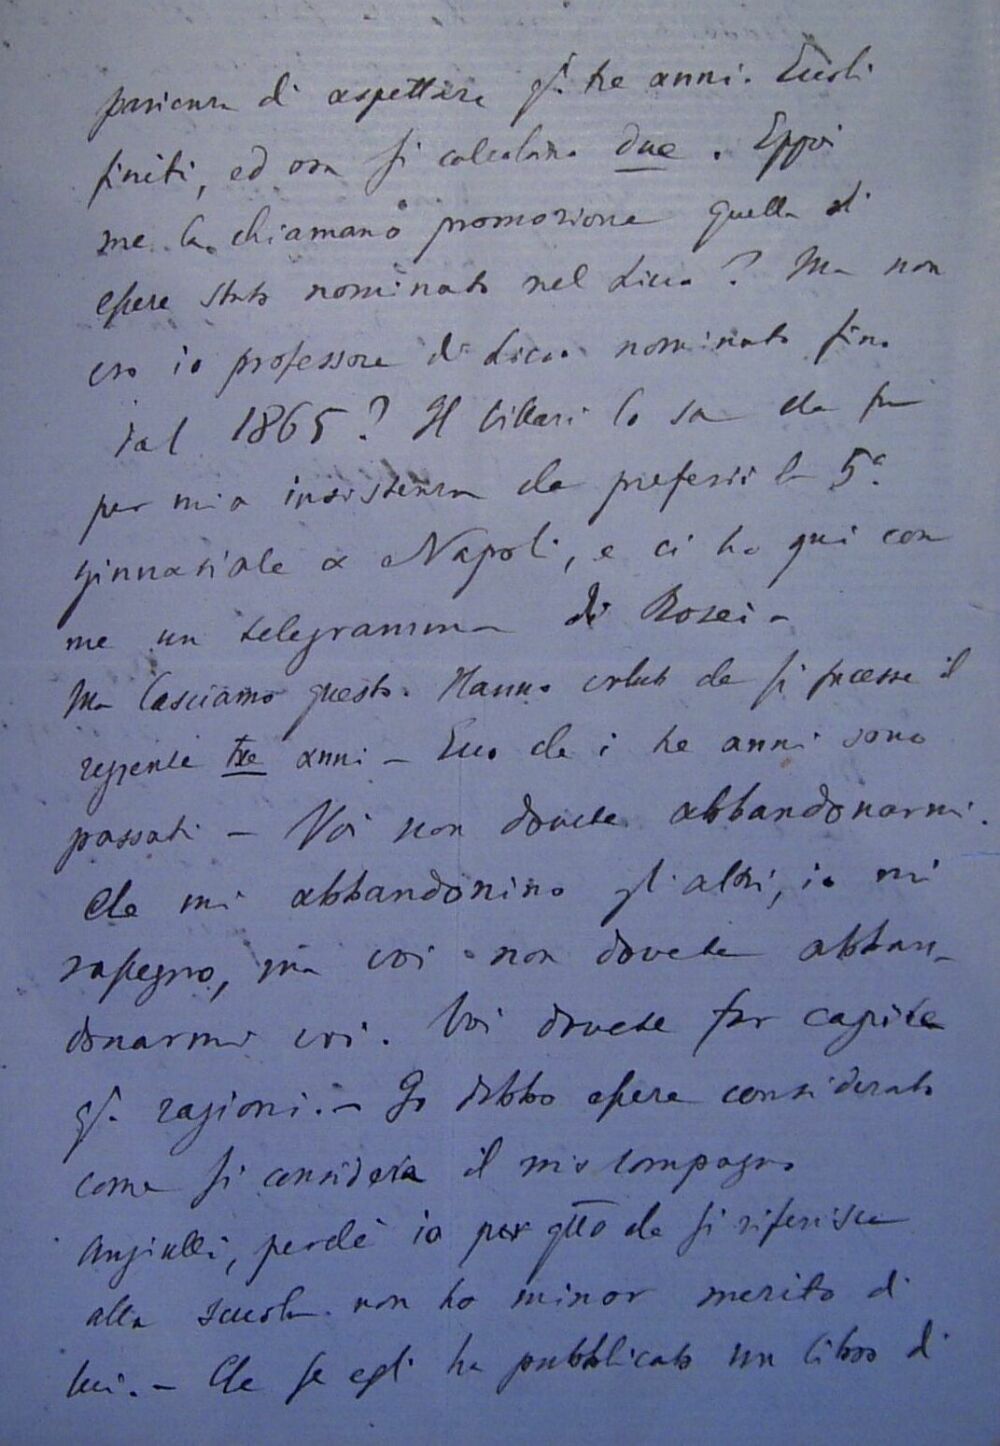 pazienza di aspettare gli tre anni. Eccoli
finiti, ed ora si calcolano due. Eppoi
me la chiamano promozione quella di
essere stato nominato nel Liceo? Ma non
ero io professore di Liceo nominato fino
dal 1865? Il Villari lo sa che fu
per mia insistenza che preferii la 5ª
ginnasiale a Napoli, e ci ho qui con
me un telegramma di Rosei -
Ma lasciamo questo. Hanno voluto che si facesse il
reggente tre anni - Ecco che i tre anni sono
passati - Voi non dovete abbandonarmi.
Che mi abbandonino gli altri, io mi
rassegno, ma voi non dovete abban-
donarmi voi. Voi dovete far capire
gli ragioni. - Io debbo essere considerato
come si considera il mio compagno
Angiulli, perchè io per qtto che si riferisce
alla scuola non ho minor merito di
lui. - Che se egli ha pubblicato un libro di